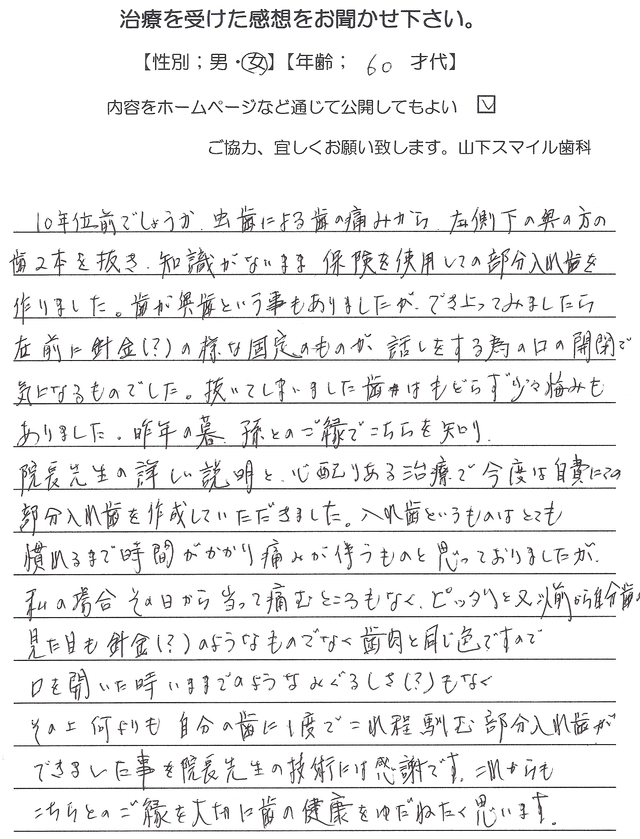 治療を受けた感想をお聞かせ下さい。
【性別；男・女】【年齢； 60 才代】
内容をホームページなど通じて公開してもよい ☑
ご協力、宜しくお願い致します。山下スマイル歯科
10年位前でしょうか、虫歯による歯の痛みから、左側下の奥の方の
歯2本を抜き、知識がないまま 保険を使用しての部分入れ歯を
作りました。歯が奥歯という事もありましたが、でき上ってみましたら
左前に針金(？)の様な固定のものが、話しをする為の口の開閉で
気になるものでした。抜いてしまいました歯はもどらず少々悔みも
ありました。昨年の暮、孫とのご縁でこちらを知り、
院長先生の詳しい説明と、心配りある治療で今度は自費にての
部分入れ歯を作成していただきました。入れ歯というものはとても
慣れるまで時間がかかり痛みが伴うものと思っておりましたが、
私の場合 その日から当って痛むところもなく、ピッタリと 以前から自分歯の
見た目も針金(？)のようなものでなく歯肉と同じ色ですので
口を開いた時いままでのようなみぐるしさ(？)もなく
その上何よりも 自分の歯に1度でこれ程馴む部分入れ歯が
できました事を院長先生の技術には感謝です。これからも
こちらとのご縁を大切に歯の健康をゆだねたく思います。